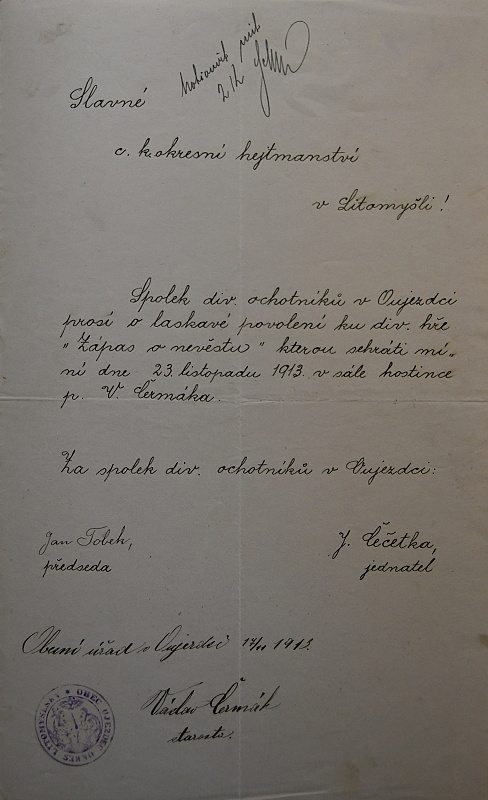 Slavné
c. k. okresní hejtmanství
v Litomyšli!
Spolek div. ochotníků v Oujezdci
prosí o laskavé povolení ku div. hře
„Zápas o nevěstu" kterou sehráti mí„
ní dne 23. listopadu 1913. v sále hostince
p. V. Čermáka.
Za spolek div. ochotníků v Oujezdci:
Jan Tobek,
předseda
J. Čečetka,
jednatel
Obecní úřad v Oujezdci 17/XI 1913.
Václav Čermák
starosta.